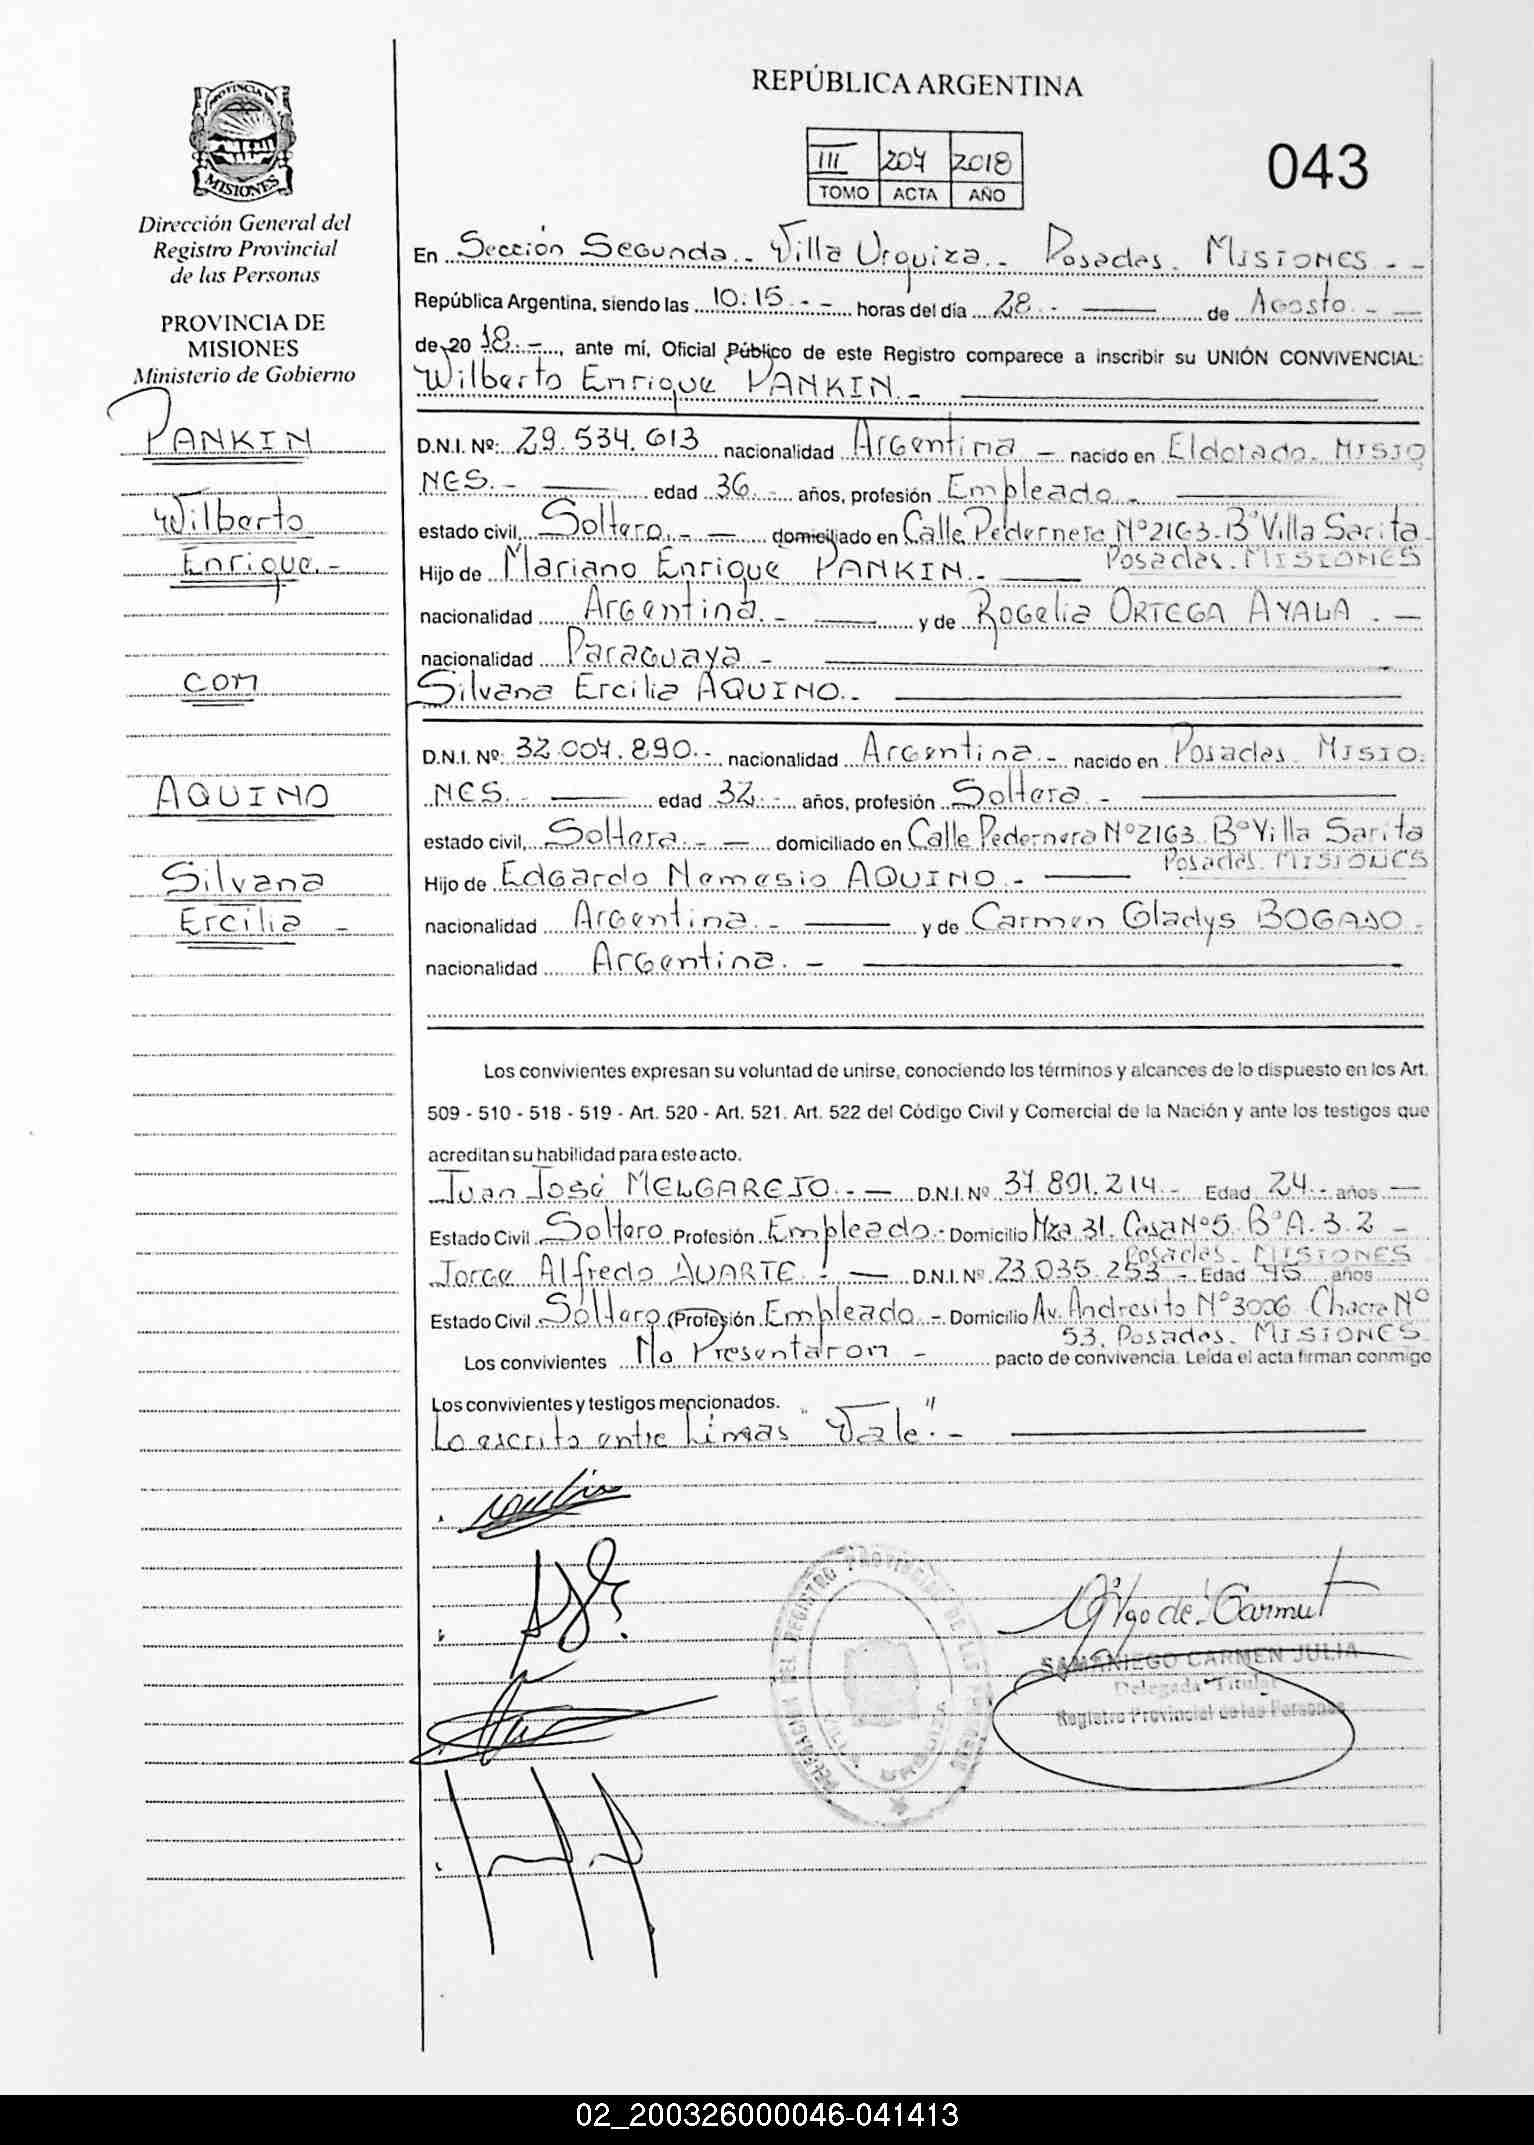 REPÚBLICA ARGENTINA
PROVINCIA DE
MISIONES
III 207 2018
TOMO ACTA AÑO
043
Dirección General del
Registro Provincial
de las Personas
PROVINCIA DE
MISIONES
Ministerio de Gobierno
PANKIN
Wilberto
Enrique.-
con
AQUINO
Silvana
Ercilia -
En Sección Segunda.- Villa Urquiza.- Posadas. MISIONES.--
República Argentina, siendo las 10:15.-- horas del día 28.- de Agosto.-
de 20 18.-, ante mí, Oficial Público de este Registro comparece a inscribir su UNIÓN CONVIVENCIAL:
Wilberto Enrique PANKIN.-
D.N.I. Nº: 29.534.613 nacionalidad Argentina - nacido en Eldorado. MISIO
NES.- edad 36.- años, profesión Empleado.-
estado civil, Soltero.-- domiciliado en Calle Pedernera Nº2163-Bº Villa Sarita-
Posadas. MISIONES
Hijo de Mariano Enrique PANKIN.-
nacionalidad Argentina.- y de Rogelia ORTEGA AYALA.-
nacionalidad Paraguaya-
Silvana Ercilia AQUINO.-
D.N.I. Nº: 32.007.890.- nacionalidad Argentina.- nacido en Posadas. MISIO.
NES.- edad 32.- años, profesión Soltera-
estado civil, Soltera.-- domiciliado en Calle Pedernera Nº2163. Bº Villa Sarita
Posadas. MISIONES
Hijo de Edgardo Nemesio AQUINO.-
nacionalidad Argentina.- y de Carmen Gladys BOGADO.
nacionalidad Argentina.-
Los convivientes expresan su voluntad de unirse, conociendo los términos y alcances de lo dispuesto en los Art.
509 - 510 - 518 - 519 - Art. 520 - Art. 521. Art. 522 del Código Civil y Comercial de la Nación y ante los testigos que
acreditan su habilidad para este acto.
Juan José MELGAREJO.-- D.N.I. Nº 37.891.214.- Edad 24.- años
Estado Civil Soltero Profesión Empleado.- Domicilio Mza 31. Casa Nº5. Bº A.3.2-
Posadas. MISIONES
Jorge Alfredo DUARTE.- D.N.I. Nº 23.035.253- Edad 45 años
Estado Civil Soltero Profesión Empleado.- Domicilio Av. Andresito Nº3006 Chacra Nº
53. Posadas. MISIONES.
Los convivientes No Presentaron- pacto de convivencia. Leída el acta firman conmigo
Los convivientes y testigos mencionados.
Lo escrito entre Lineas "Vale".-
DELEGACION DEL REGISTRO PROVINCIAL DE LAS PERSONAS
VILLA URQUIZA
SAMANIEGO CARMEN JULIA
Delegada Titular
Registro Provincial de las Personas
02_200326000046-041413